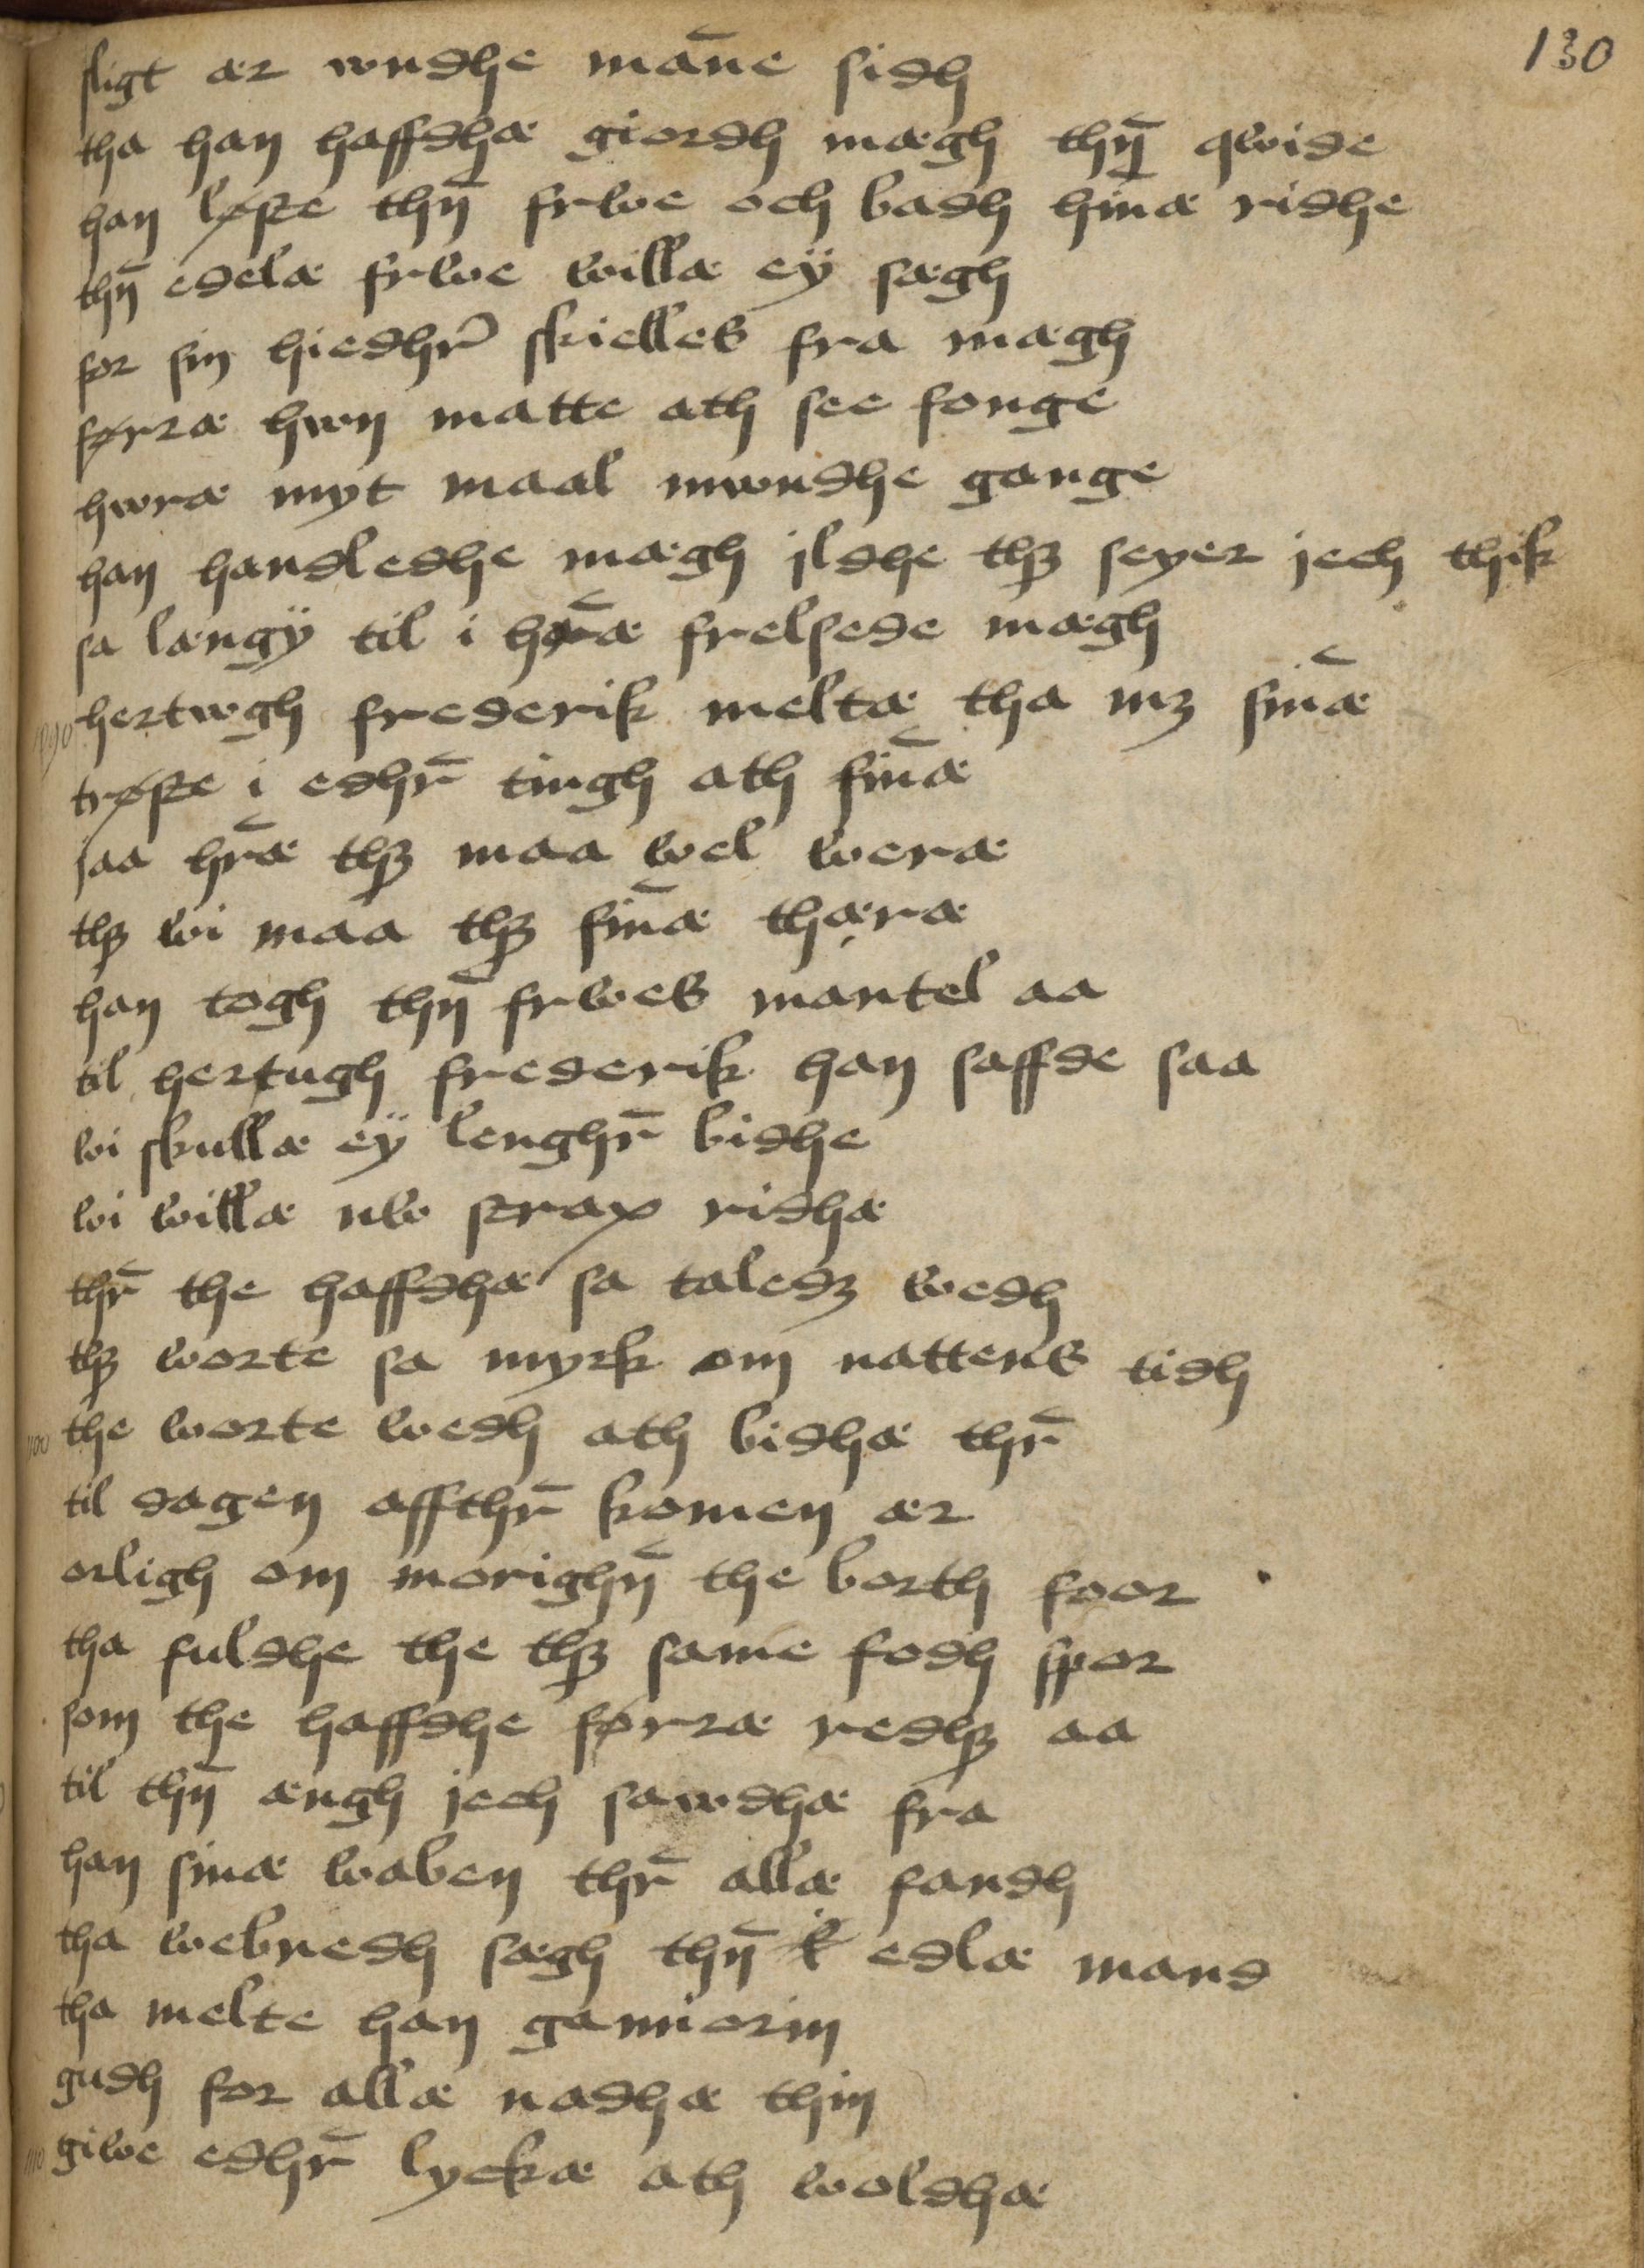 130
sligt ær wndhe man̄e sidh
tha han haffdhæ giordh mægh thn̄ qwide
han løste thn̄ frwe och badh hin̄æ ridhe
thn̄ edelæ frwe willæ eÿ sægh
for sin hiedhr̄ skielles fra mægh
førræ hwn matte ath see fonge
hwræ myt maal mwndhe gange
han handledhe mægh jldhe thꝫ seyer jech thik
sa længÿ til i hr̄æ frelsede mægh
1090 hertwgh frederik meltæ tha mꝫ sin̄æ
trøste i edhr̄ tingh ath fin̄æ
jaa hr̄æ thꝫ maa wel weræ
thꝫ wi maa thꝫ fin̄æ thæræ
han togh thn̄ frwes mantel aa
til hertugh frederik han saffde saa
wi skullæ eÿ lenghr̄ bidhe
wi willæ nw strax ridhæ
thr̄ the haffdhæ sa taledꝫ wedh
thꝫ worte sa myrk om nattens tidh
1100 the worte wedh ath bidhæ thr̄
til dagen affthr̄ komen ær
orligh om morighn̄ the borth foor
tha fuldhe the thꝫ same fodh spor
som the haffdhe førræ redhꝫ aa
til thn̄ ængh jech sawdhæ fra
han sinæ waben thr̄ allæ fandh
tha webnedh sægh thn̄ k edlæ mand
tha melte han gamiorin
gudh for allæ nadhæ thin
1110 giwe edhr̄ lyckæ ath woldhæ